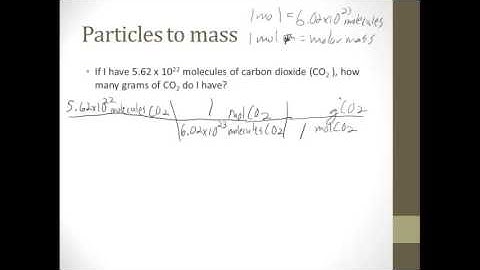 1 mol = 6.02x10^23 molecules
1 mol = molar mass
Particles to mass
• If I have 5.62 x 10^22 molecules of carbon dioxide (CO₂ ), how
many grams of CO₂ do I have?
5.62x10^22 molecules CO₂ | 1 mol CO₂ | g CO₂
6.02x10^23 molecules CO₂ | 1 mol CO₂